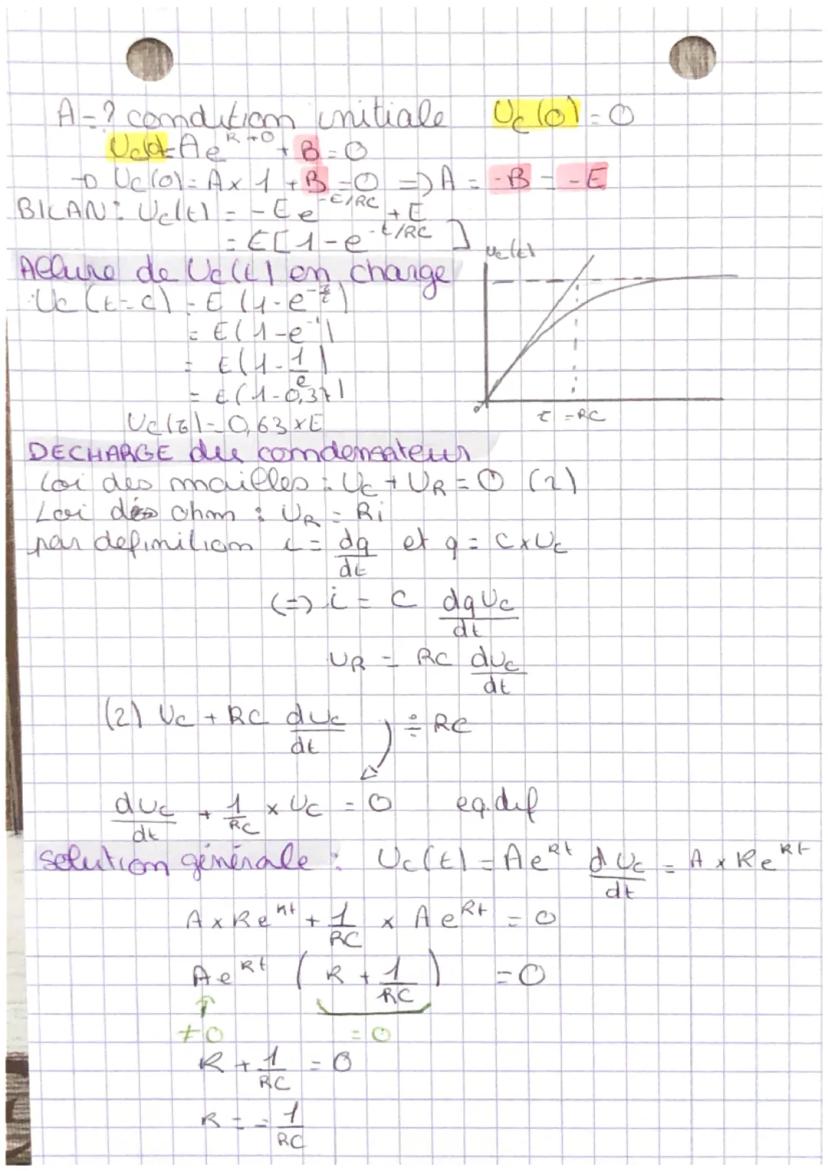 A=? condition initiale Uc(0) = 0
Uc(0)=Ae^{k×0} + B = 0
→ Uc(0) = A x 1 + B = 0 => A = -B = -E
BILAN : Uc(t) = -Ee^{-t/RC} + E
= E[1-e^{-t/RC}]
Uc(t)
Allure de Uc(t) en charge
Uc (t=τ) = E (1-e^{-τ/τ})
= E(1-e^{-1})
= E(1-1/e)
= E(1-0,37)
Uc(τ) = 0,63 x E
0
τ = RC
DECHARGE du condensateur
Loi des mailles : Uc + UR = 0 (2)
Loi des ohm : UR = Ri
par definition i = dq/dt et q = C x Uc
(=) i = C dqUc/dt
UR = RC dUc/dt
(2) Uc + RC dUc/dt ÷ RC
dUc/dt + 1/RC x Uc = 0 eq.dif
Solution générale : Uc(t) = Ae^{kt} dUc/dt = A x Ke^{kt}
A x Ke^{kt} + 1/RC x Ae^{kt} = 0
Ae^{kt} (K + 1/RC) = 0
≠0 = 0
K + 1/RC = 0
K = - 1/RC